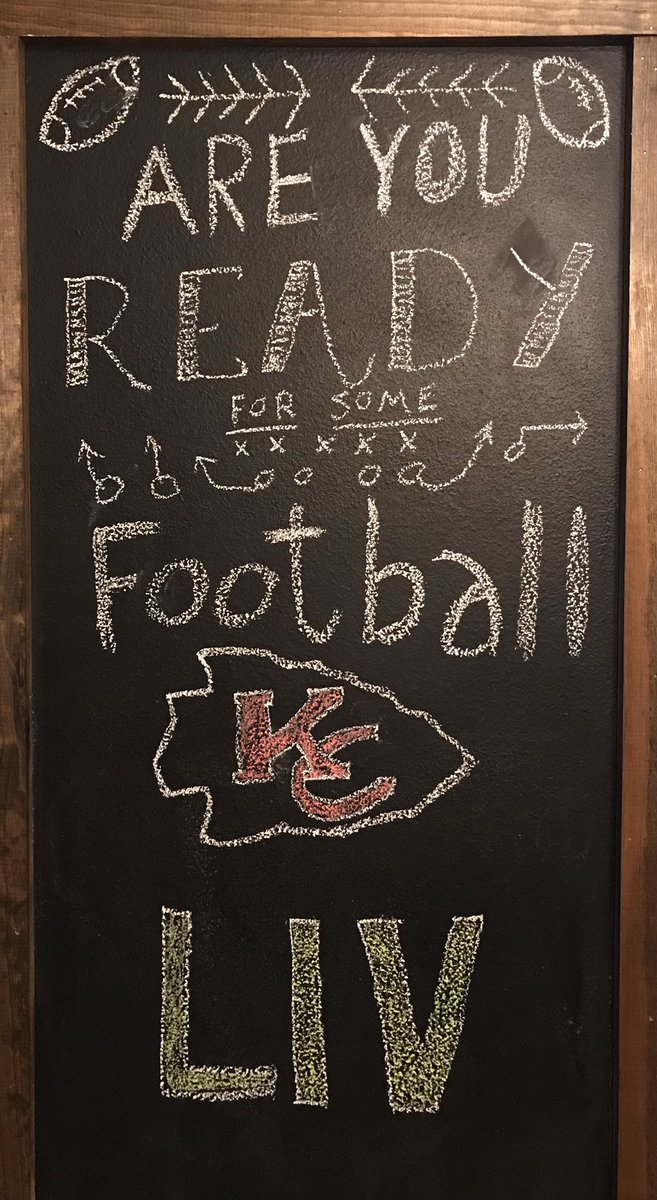 ARE YOU
READY
FOR SOME
x x x x x
Football
KC
LIV